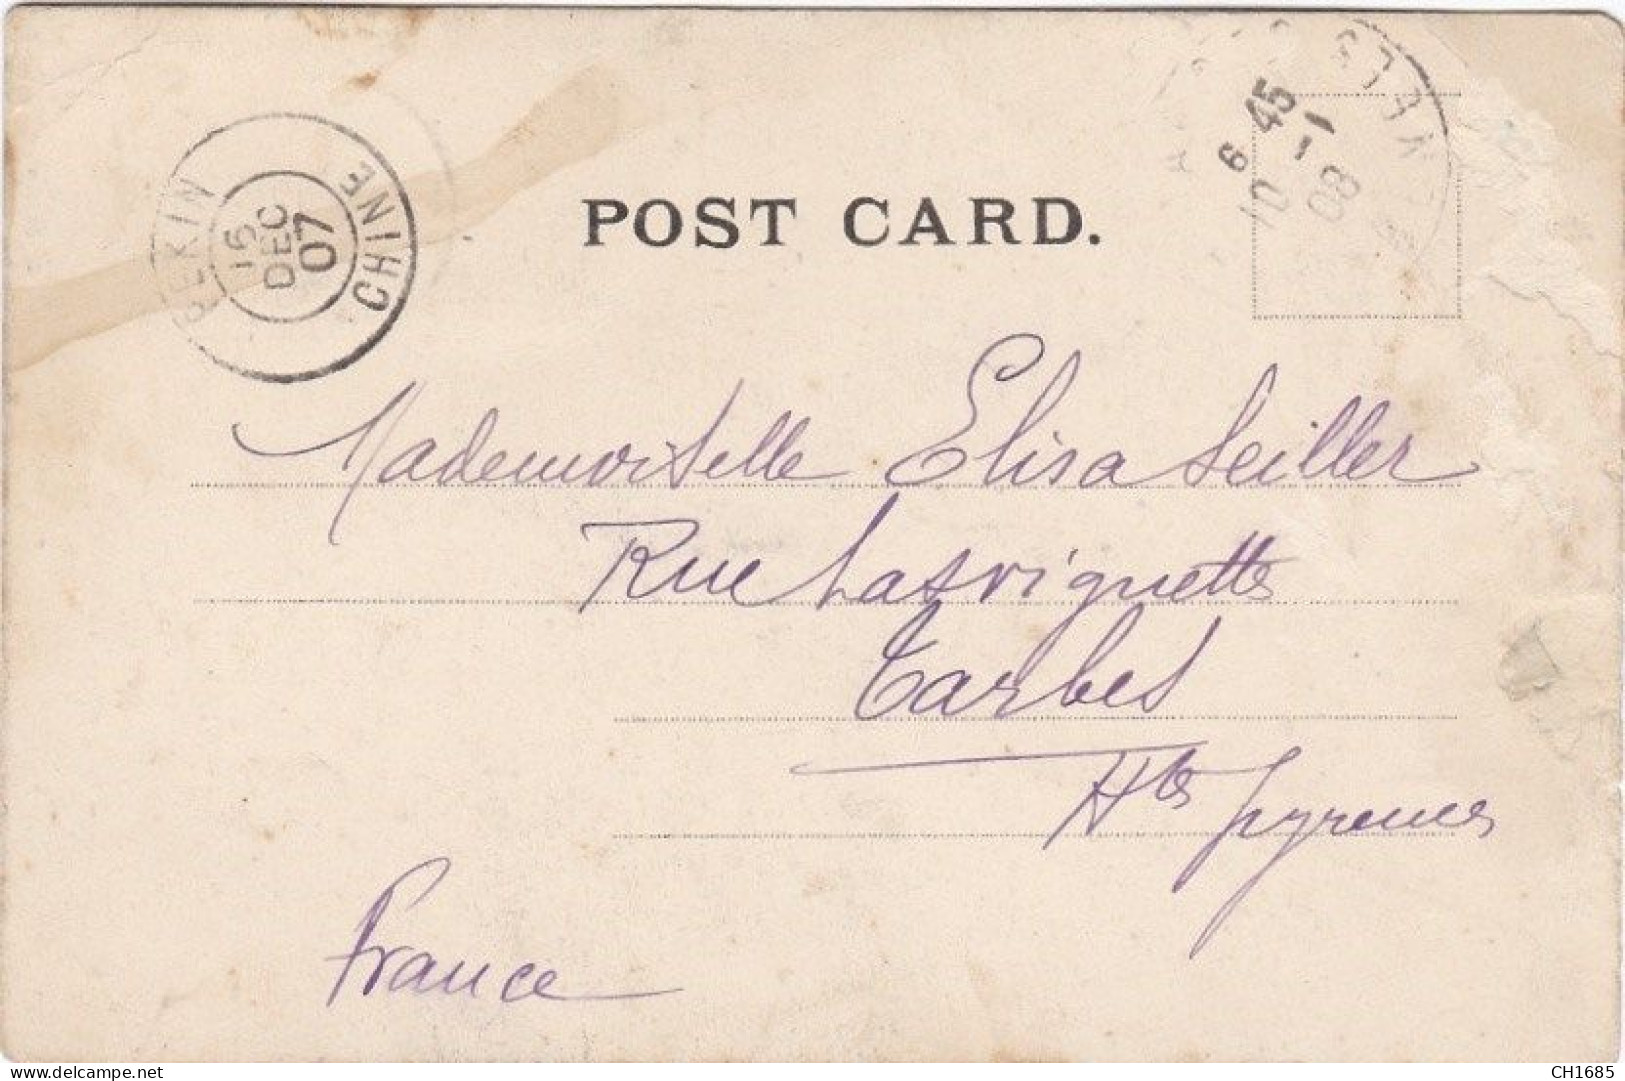 PEKIN
CHINE
16
DEC
07
6 45
10 - 1
08
POST CARD.
Mademoiselle Elisa Seiller
Rue Lasvignettes
Tarbes
Htes Pyrenees
France
delcampe.net
CH1685